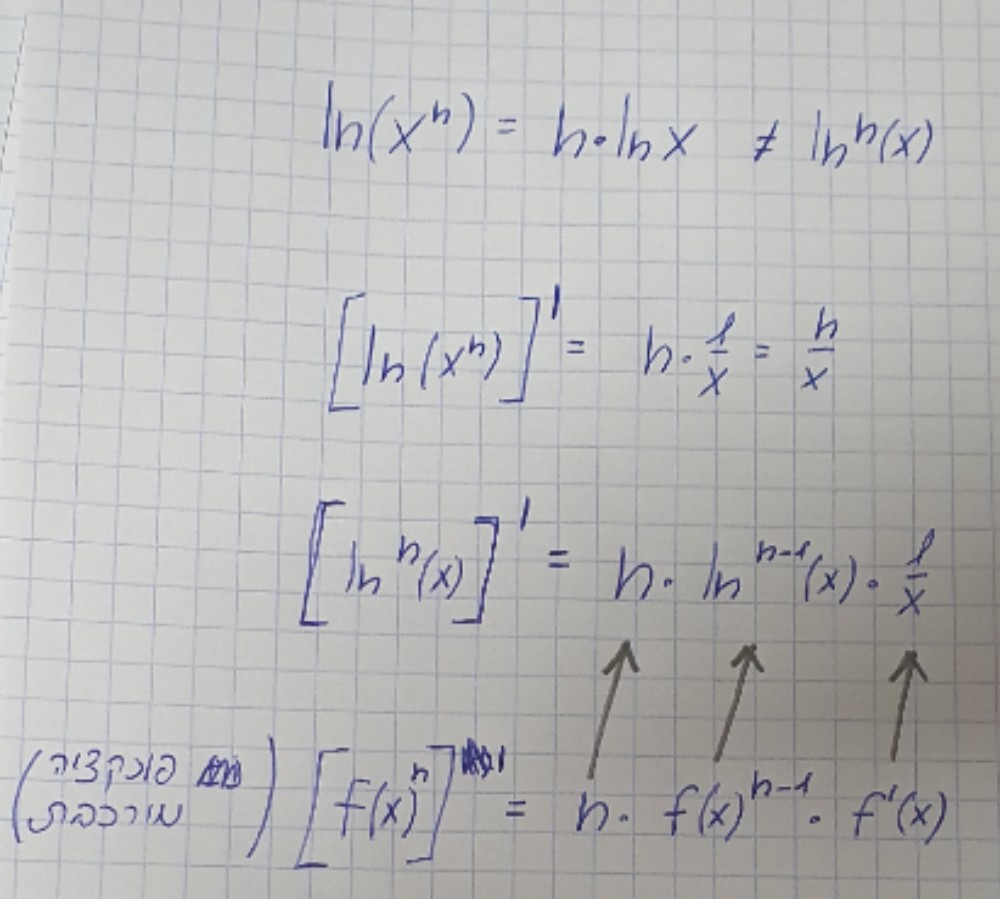 ln(xⁿ) = n·ln x ≠ lnⁿ(x)
[ln(xⁿ)]' = n·1/x = n/x
[lnⁿ(x)]' = n·lnⁿ⁻¹(x)·1/x
(פונקציה מורכבת) [f(x)ⁿ]' = n·f(x)ⁿ⁻¹·f'(x)